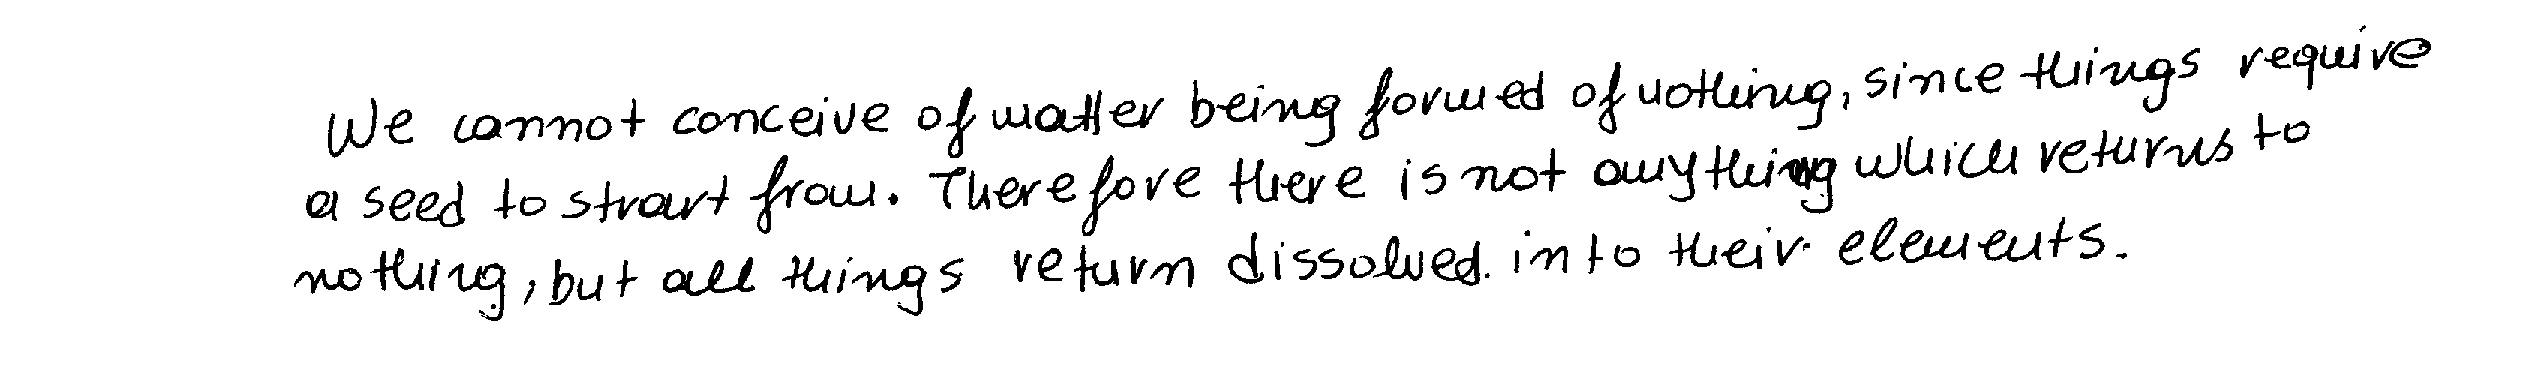 We cannot conceive of matter being formed of nothing, since things require
a seed to strart from. Therefore there is not anything which returns to
nothing, but all things return dissolved into their elements.